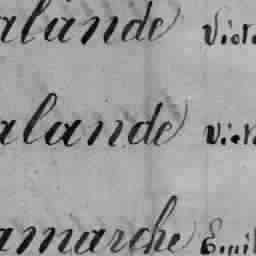 alande Vict
alande Vict
amarche Emil